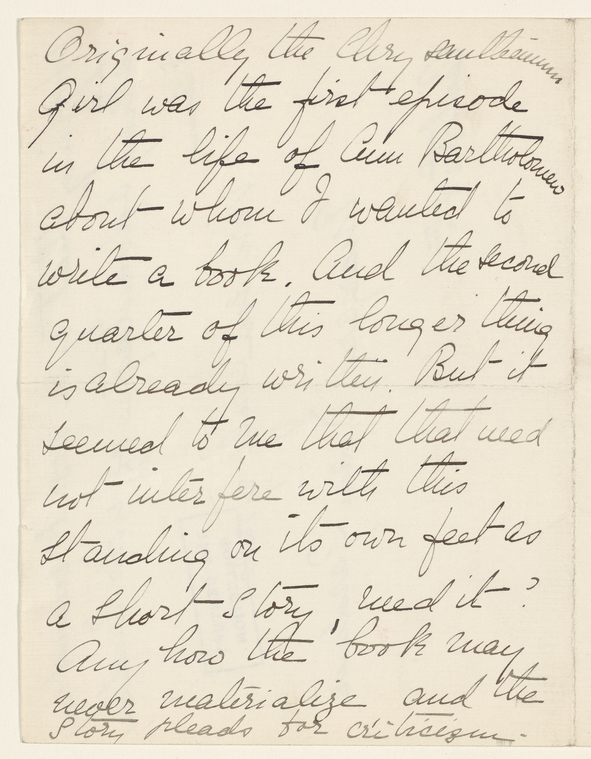 Originally the Chrysanthemum
Girl was the first episode
in the life of Ann Bartholomew
about whom I wanted to
write a book. And the second
quarter of this longer thing
is already written. But it
seemed to me that that need
not interfere with this
standing on its own feet as
a short story need it?
Anyhow the book may
never materialize and the
story pleads for criticism.